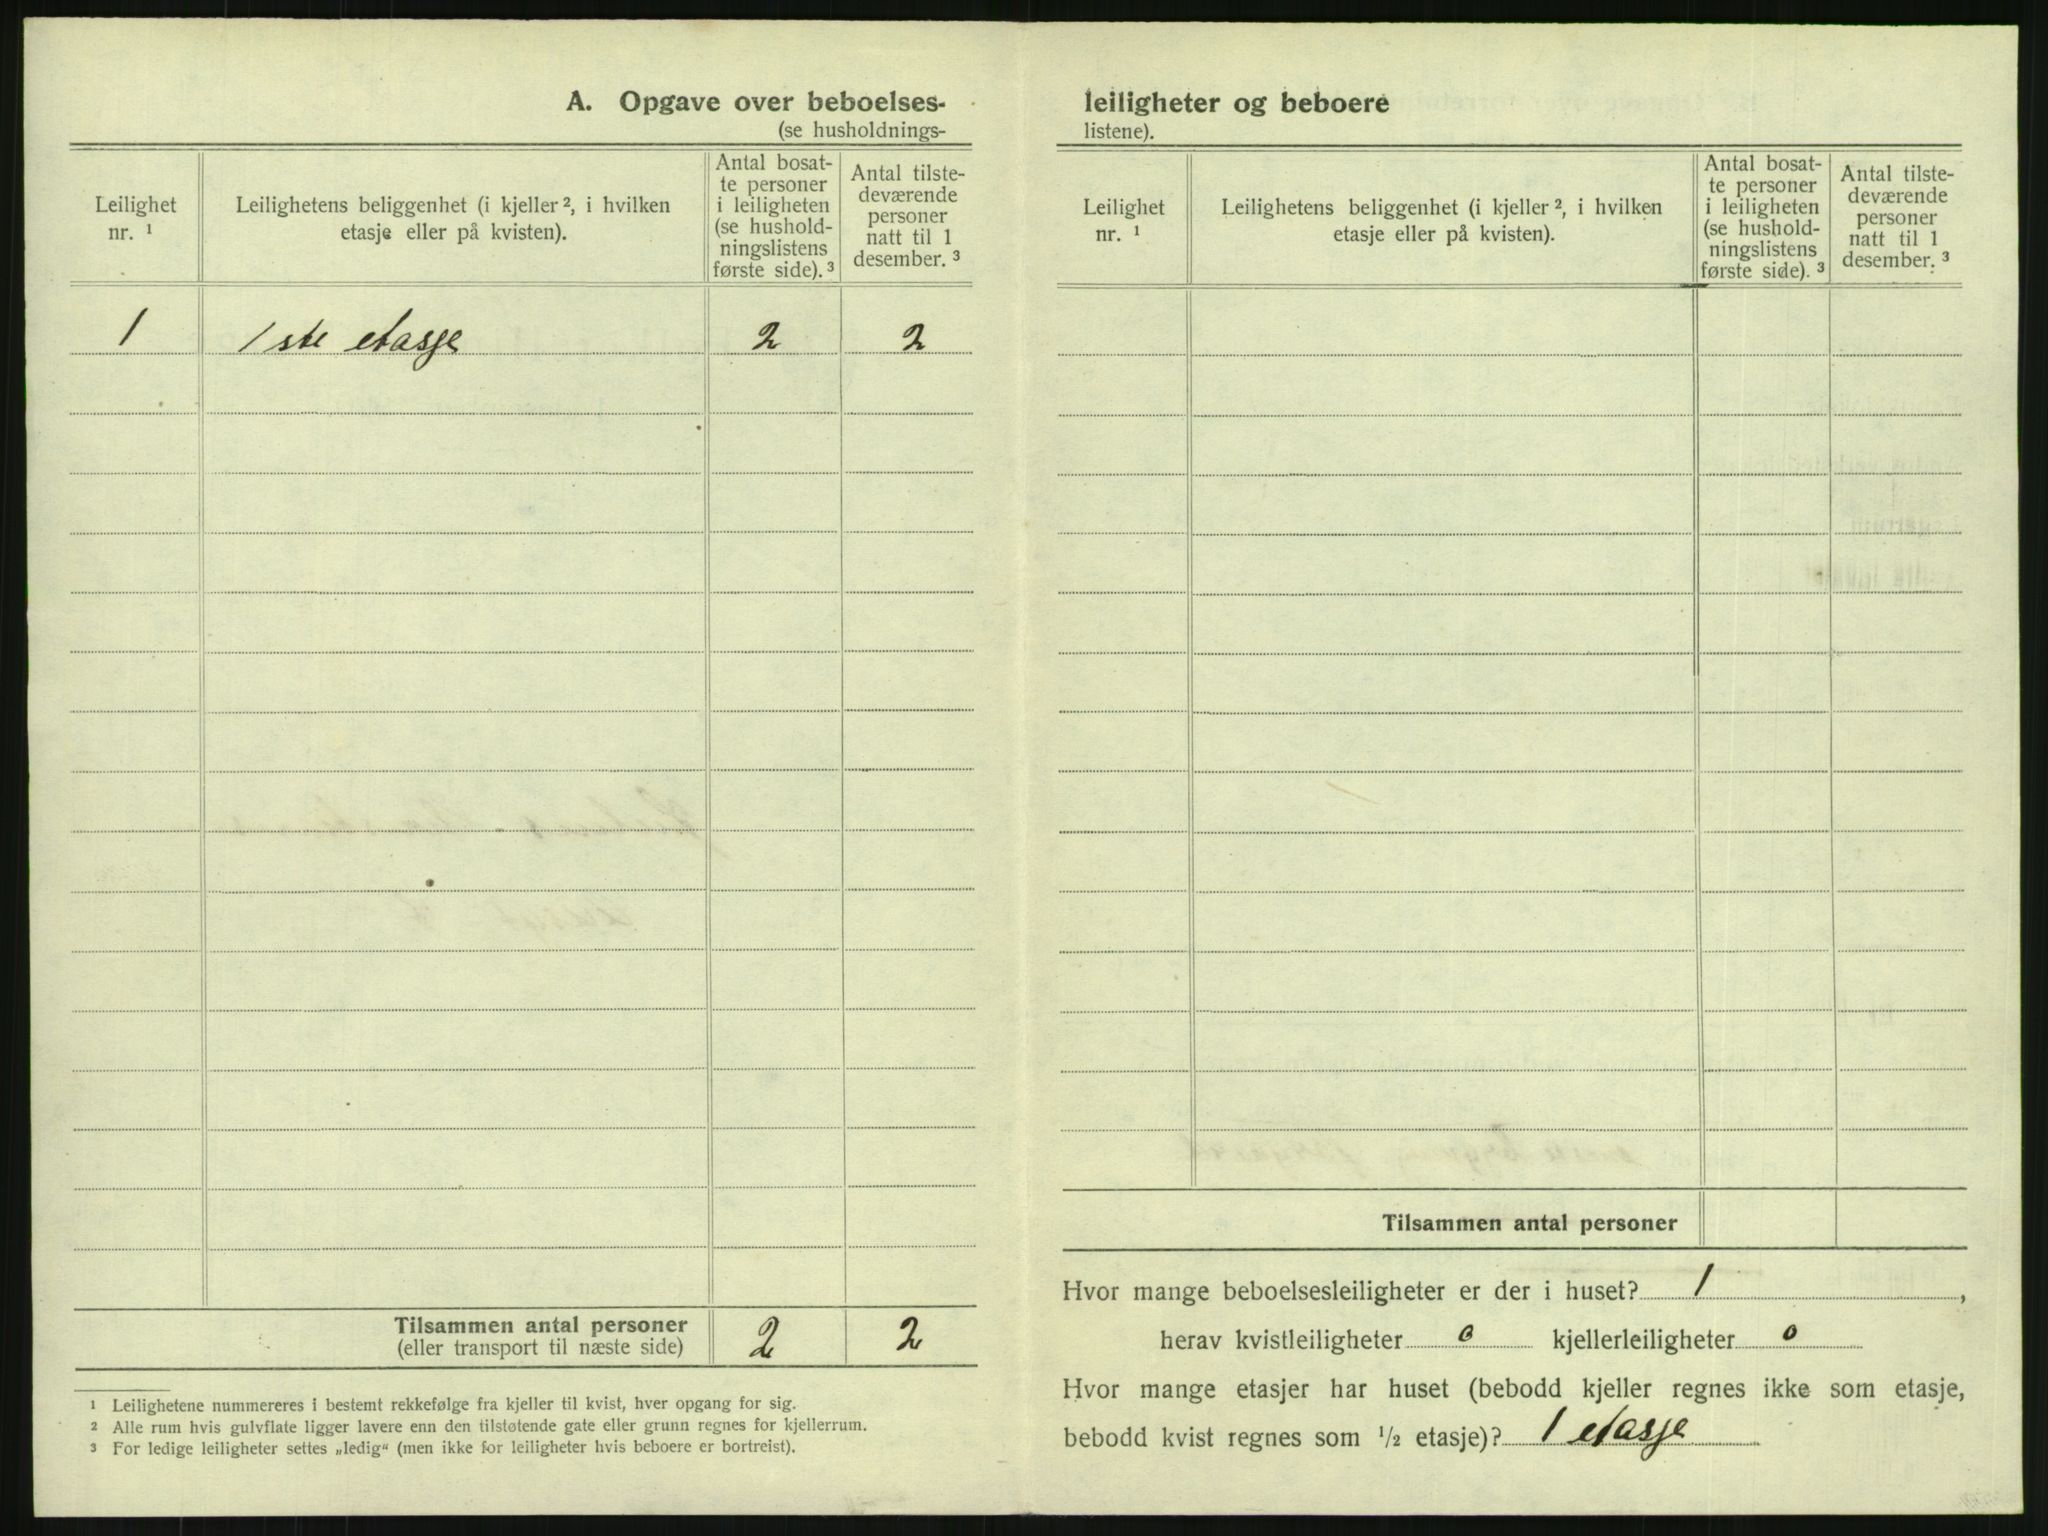 A. Opgave over beboelses-
(se husholdnings-
Leilighet
nr. ¹
Leilighetens beliggenhet (i kjeller ², i hvilken
etasje eller på kvisten).
Antal bosat-
te personer
i leiligheten
(se hushold-
ningslistens
første side). ³
Antal tilste-
deværende
personer
natt til 1
desember. ³
1 1ste etasje 2 2
Tilsammen antal personer 2 2
(eller transport til næste side)
¹ Leilighetene nummereres i bestemt rekkefølge fra kjeller til kvist, hver opgang for sig.
² Alle rum hvis gulvflate ligger lavere enn den tilstøtende gate eller grunn regnes for kjellerrum.
³ For ledige leiligheter settes „ledig“ (men ikke for leiligheter hvis beboere er bortreist).
leiligheter og beboere
listene).
Leilighet
nr. ¹
Leilighetens beliggenhet (i kjeller ², i hvilken
etasje eller på kvisten).
Antal bosat-
te personer
i leiligheten
(se hushold-
ningslistens
første side). ³
Antal tilste-
deværende
personer
natt til 1
desember. ³
Tilsammen antal personer
Hvor mange beboelsesleiligheter er der i huset? 1 ,
herav kvistleiligheter 0 kjellerleiligheter 0
Hvor mange etasjer har huset (bebodd kjeller regnes ikke som etasje,
bebodd kvist regnes som ½ etasje)? 1 etasje